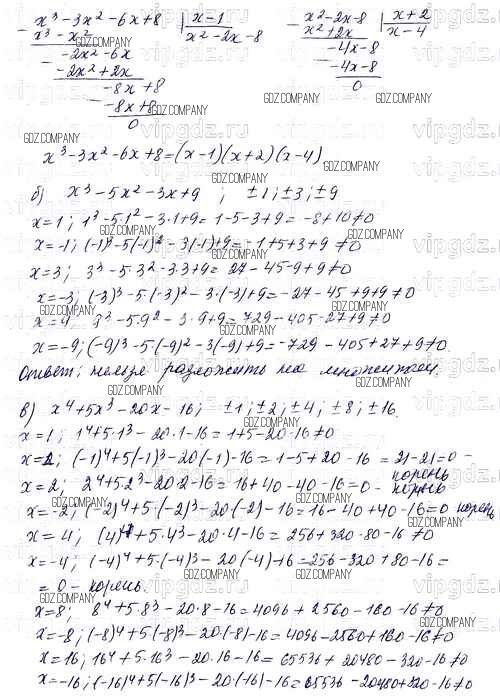 x³-3x²-6x+8 | x-1
x³-x² | x²-2x-8
-2x²-6x
-2x²+2x
-8x+8
-8x+8
0
x²-2x-8 | x+2
x²+2x | x-4
-4x-8
-4x-8
0
x³-3x²-6x+8=(x-1)(x+2)(x-4)
б) x³-5x²-3x+9 ; ±1; ±3; ±9
x=1; 1³-5·1²-3·1+9=1-5-3+9=-8+10≠0
x=-1; (-1)³-5(-1)²-3(-1)+9=-1+5+3+9≠0
x=3; 3³-5·3²-3·3+9=27-45-9+9≠0
x=-3; (-3)³-5·(-3)²-3·(-3)+9=-27-45+9+9≠0
x=9 9³-5·9²-3·9+9=729-405-27+9≠0
x=-9; (-9)³-5·(-9)²-3(-9)+9=-729-405+27+9≠0.
Ответ: нельзя разложить на множители.
в) x⁴+5x³-20x-16; ±1; ±2; ±4; ±8; ±16.
x=1; 1⁴+5·1³-20·1-16=1+5-20-16≠0
x=-1; (-1)⁴+5(-1)³-20(-1)-16=1-5+20-16=21-21=0 - корень
x=2; 2⁴+5·2³-20·2-16=16+40-40-16=0 - корень
x=-2; (-2)⁴+5(-2)³-20(-2)-16=16-40+40-16=0 корень
x=4; (4)⁴+5·4³-20·4-16=256+320-80-16≠0
x=-4; (-4)⁴+5(-4)³-20(-4)-16=256-320+80-16=
=0 - корень.
x=8; 8⁴+5·8³-20·8-16=4096+2560-160-16≠0
x=-8; (-8)⁴+5(-8)³-20·(-8)-16=4096-2560+160-16≠0
x=16; 16⁴+5·16³-20·16-16=65536+20480-320-16≠0
x=-16; (-16)⁴+5(-16)³-20(-16)-16=65536-20480+320-16≠0